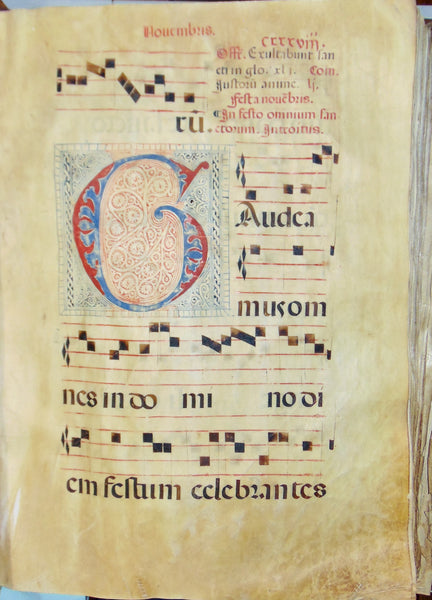 Nouembris.
cxxxviij.
Off. Exultabunt san
cti in glo. xl j. Com.
Justorū anime. lj.
Festa nouēbris.
In festo omnium san
ctorum. Introitus.
rū.
GAudea
musom
nes in do mi no di
em festum celebrantes